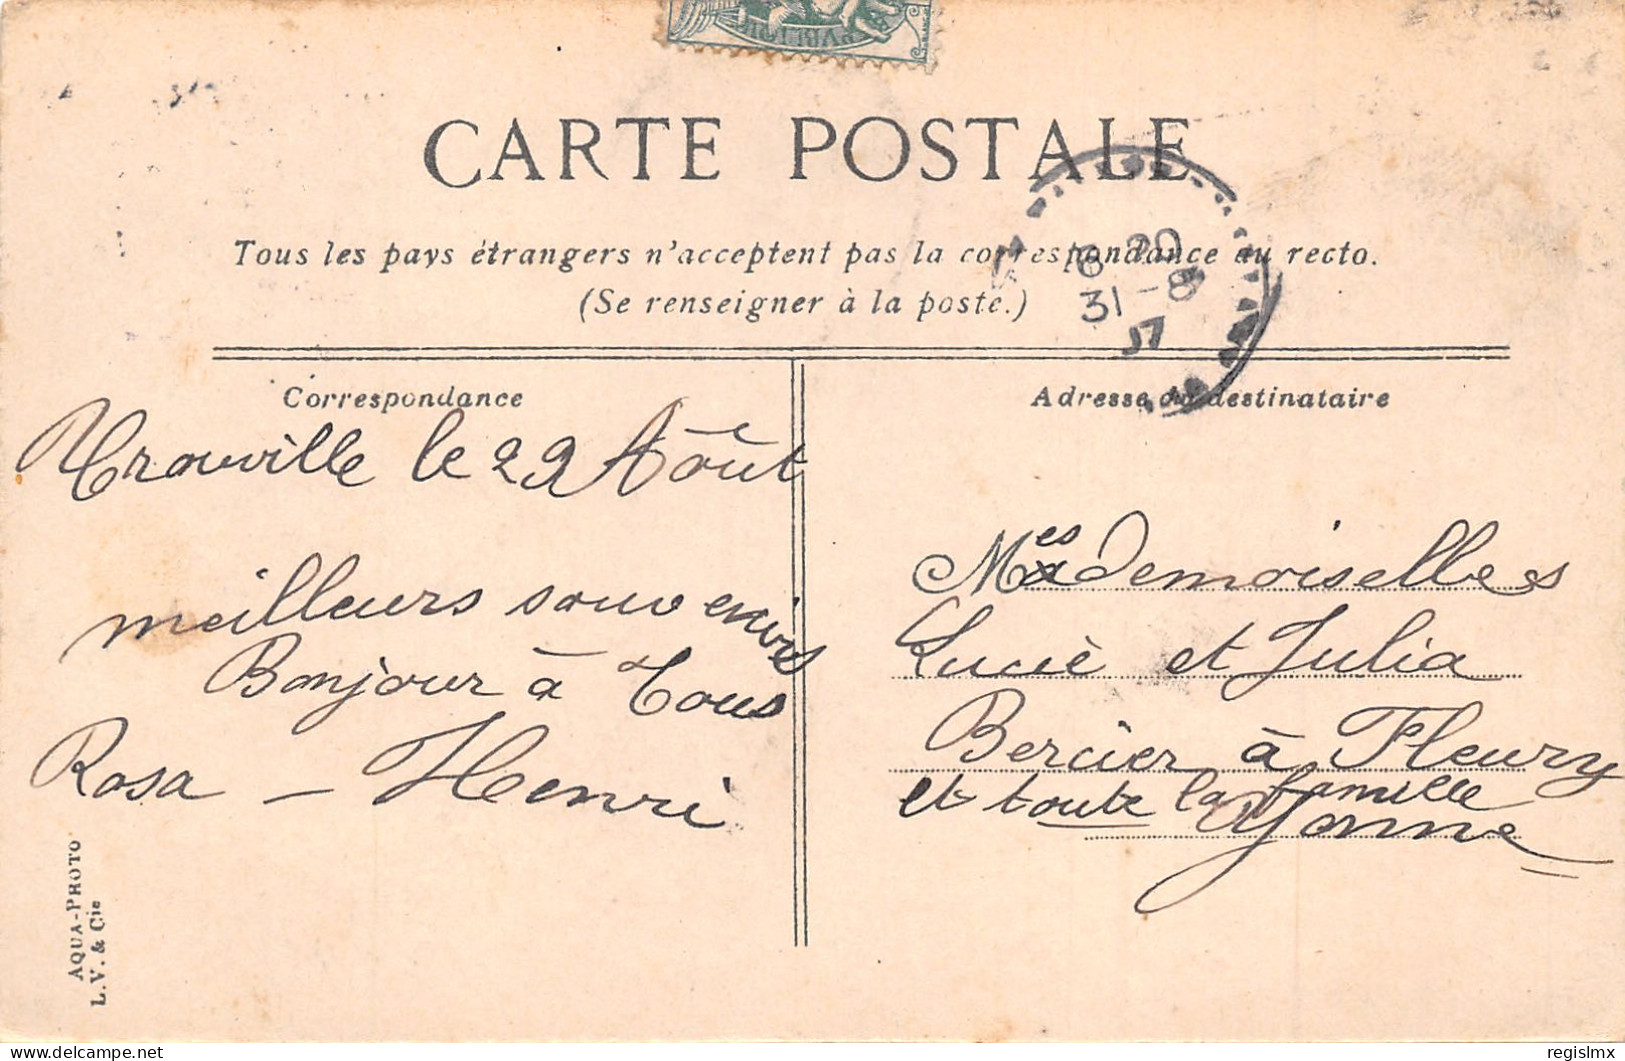 CARTE POSTALE
Tous les pays étrangers n'acceptent pas la correspondance au recto.
(Se renseigner à la poste.)
6 20
31-8
07
Correspondance
Trouville le 29 Août
meilleurs souvenirs
Bonjour à Tous
Rosa - Henri
Adresse du destinataire
Mesdemoiselles
Lucie et Julia
Bercier à Fleury
et toute la famille
Yonne
AQUA-PHOTO
L.V. & Cie
regislmx
delcampe.net